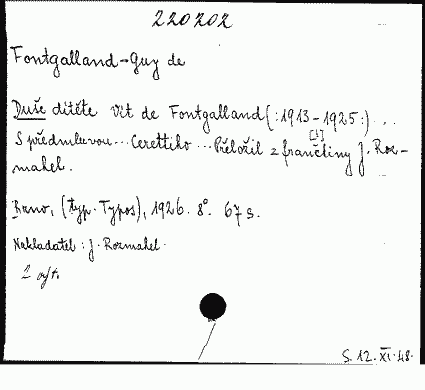 220202
Fontgalland-Guy de
Duše dítěte Vít de Fontgalland (:1913-1925:) ...
S předmluvou... Cerettiho... Přeložil z frančtiny [!] J. Roz-
mahel.
Brno, (typ. Typos), 1926. 8°. 67 s.
Nakladatel: J. Rozmahel.
S. 12. XI. 48.